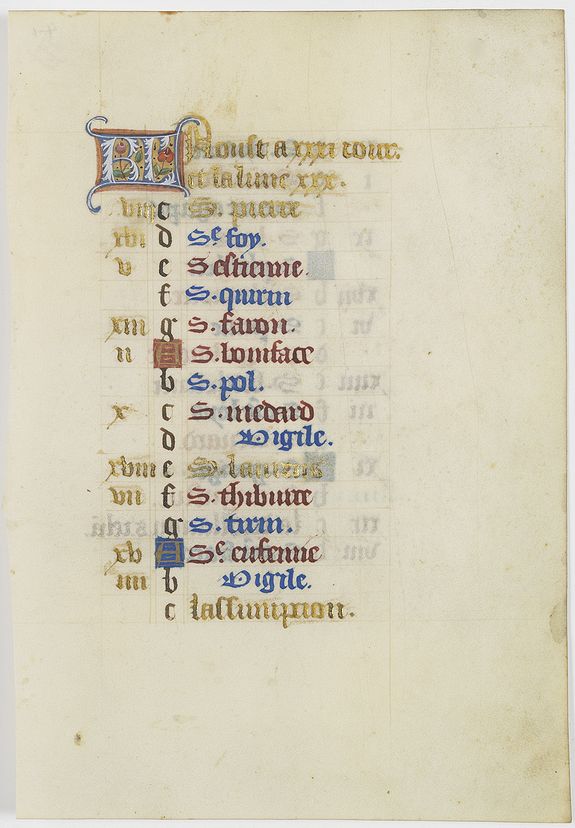 KL Aoust a xxxi iour.
et la lune xxx.
viii c S. pierre
xvi d Se foy.
v e S estienne.
f S. quirin
xiii g S. faron.
ii A S. boniface
b S. pol.
x c S. medard
d Vigile.
xviii e S. laurens
vii f S. thiburce
g S. turin.
xv A Se eusenne
iiii b Vigile.
c lassumption.